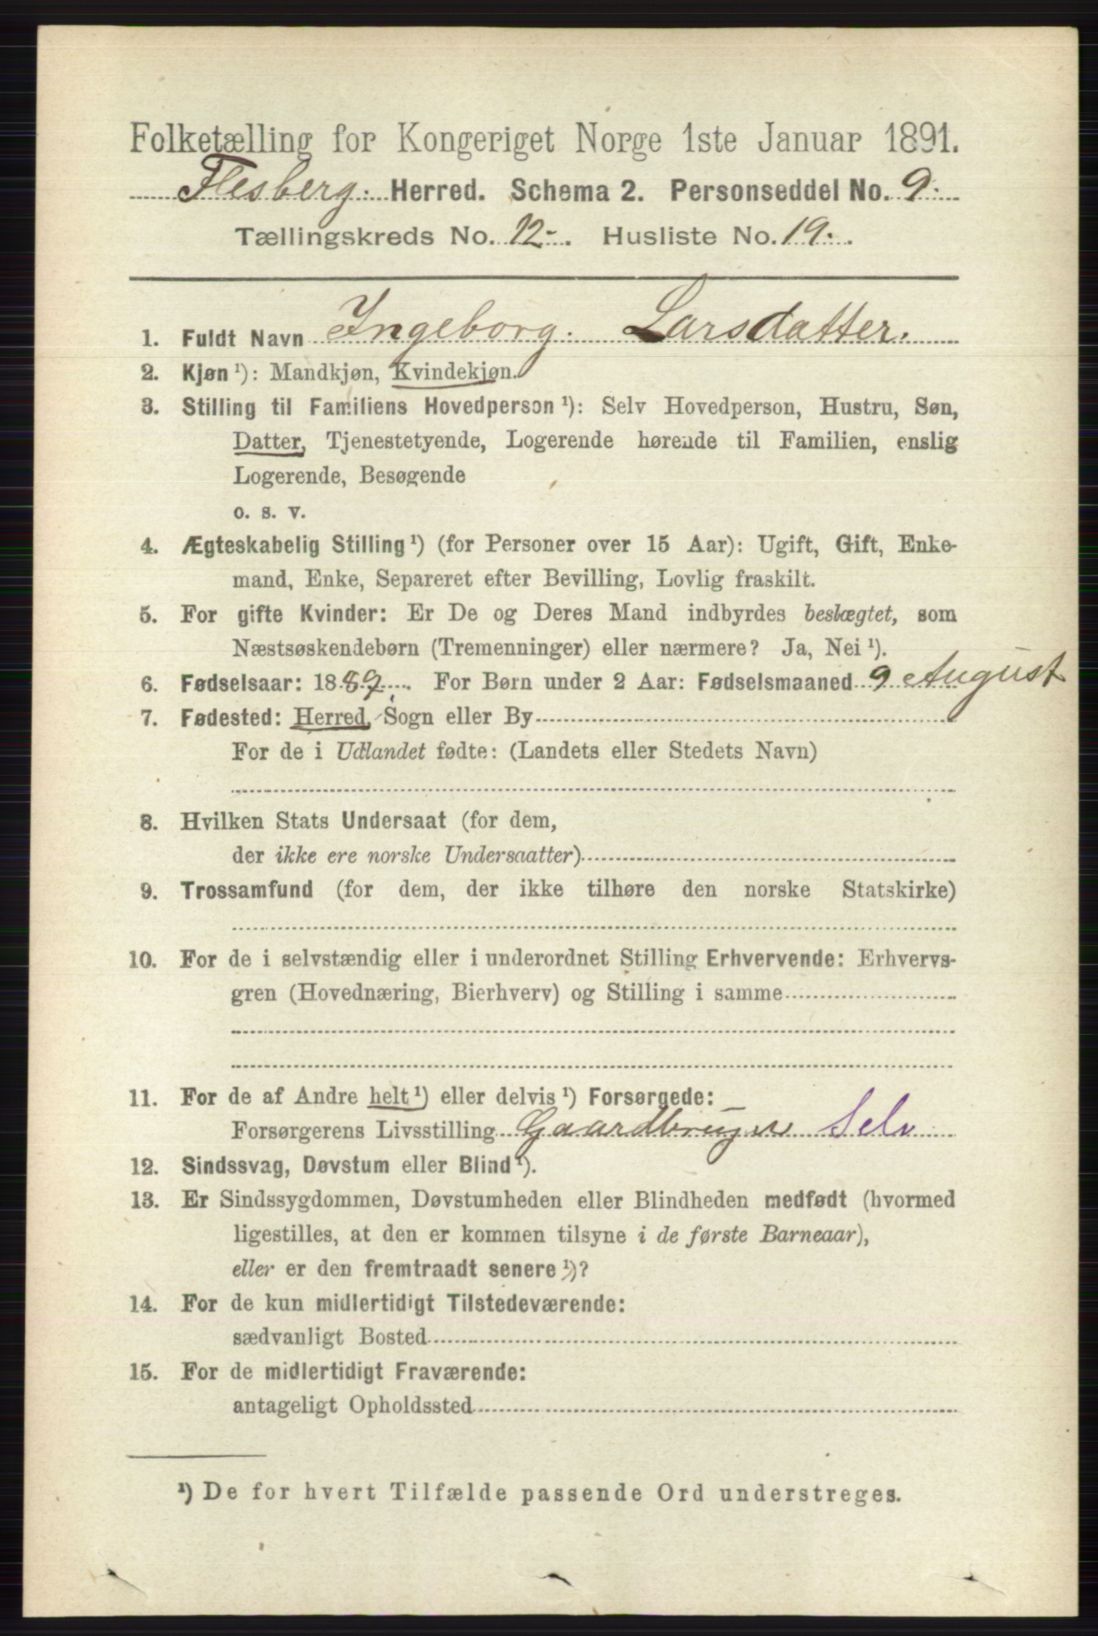 Folketælling for Kongeriget Norge 1ste Januar 1891.
Flesberg. Herred. Schema 2. Personseddel No. 9.
Tællingskreds No. 12. Husliste No. 19.
1. Fuldt Navn Ingeborg. Larsdatter.
2. Kjøn ¹): Mandkjøn, Kvindekjøn.
3. Stilling til Familiens Hovedperson ¹): Selv Hovedperson, Hustru, Søn,
Datter, Tjenestetyende, Logerende hørende til Familien, enslig
Logerende, Besøgende
o. s. v.
4. Ægteskabelig Stilling ¹) (for Personer over 15 Aar): Ugift, Gift, Enke-
mand, Enke, Separeret efter Bevilling, Lovlig fraskilt.
5. For gifte Kvinder: Er De og Deres Mand indbyrdes beslægtet, som
Næstsøskendebørn (Tremenninger) eller nærmere? Ja, Nei ¹).
6. Fødselsaar: 1889. For Børn under 2 Aar: Fødselsmaaned 9 August
7. Fødested: Herred, Sogn eller By
For de i Udlandet fødte: (Landets eller Stedets Navn)
8. Hvilken Stats Undersaat (for dem,
der ikke ere norske Undersaatter)
9. Trossamfund (for dem, der ikke tilhøre den norske Statskirke)
10. For de i selvstændig eller i underordnet Stilling Erhvervende: Erhvervs-
gren (Hovednæring, Bierhverv) og Stilling i samme
11. For de af Andre helt ¹) eller delvis ¹) Forsørgede:
Forsørgerens Livsstilling Gaardbruger Selv
12. Sindssvag, Døvstum eller Blind ¹).
13. Er Sindssygdommen, Døvstumheden eller Blindheden medfødt (hvormed
ligestilles, at den er kommen tilsyne i de første Barneaar),
eller er den fremtraadt senere ¹)?
14. For de kun midlertidigt Tilstedeværende:
sædvanligt Bosted
15. For de midlertidigt Fraværende:
antageligt Opholdssted
¹) De for hvert Tilfælde passende Ord understreges.